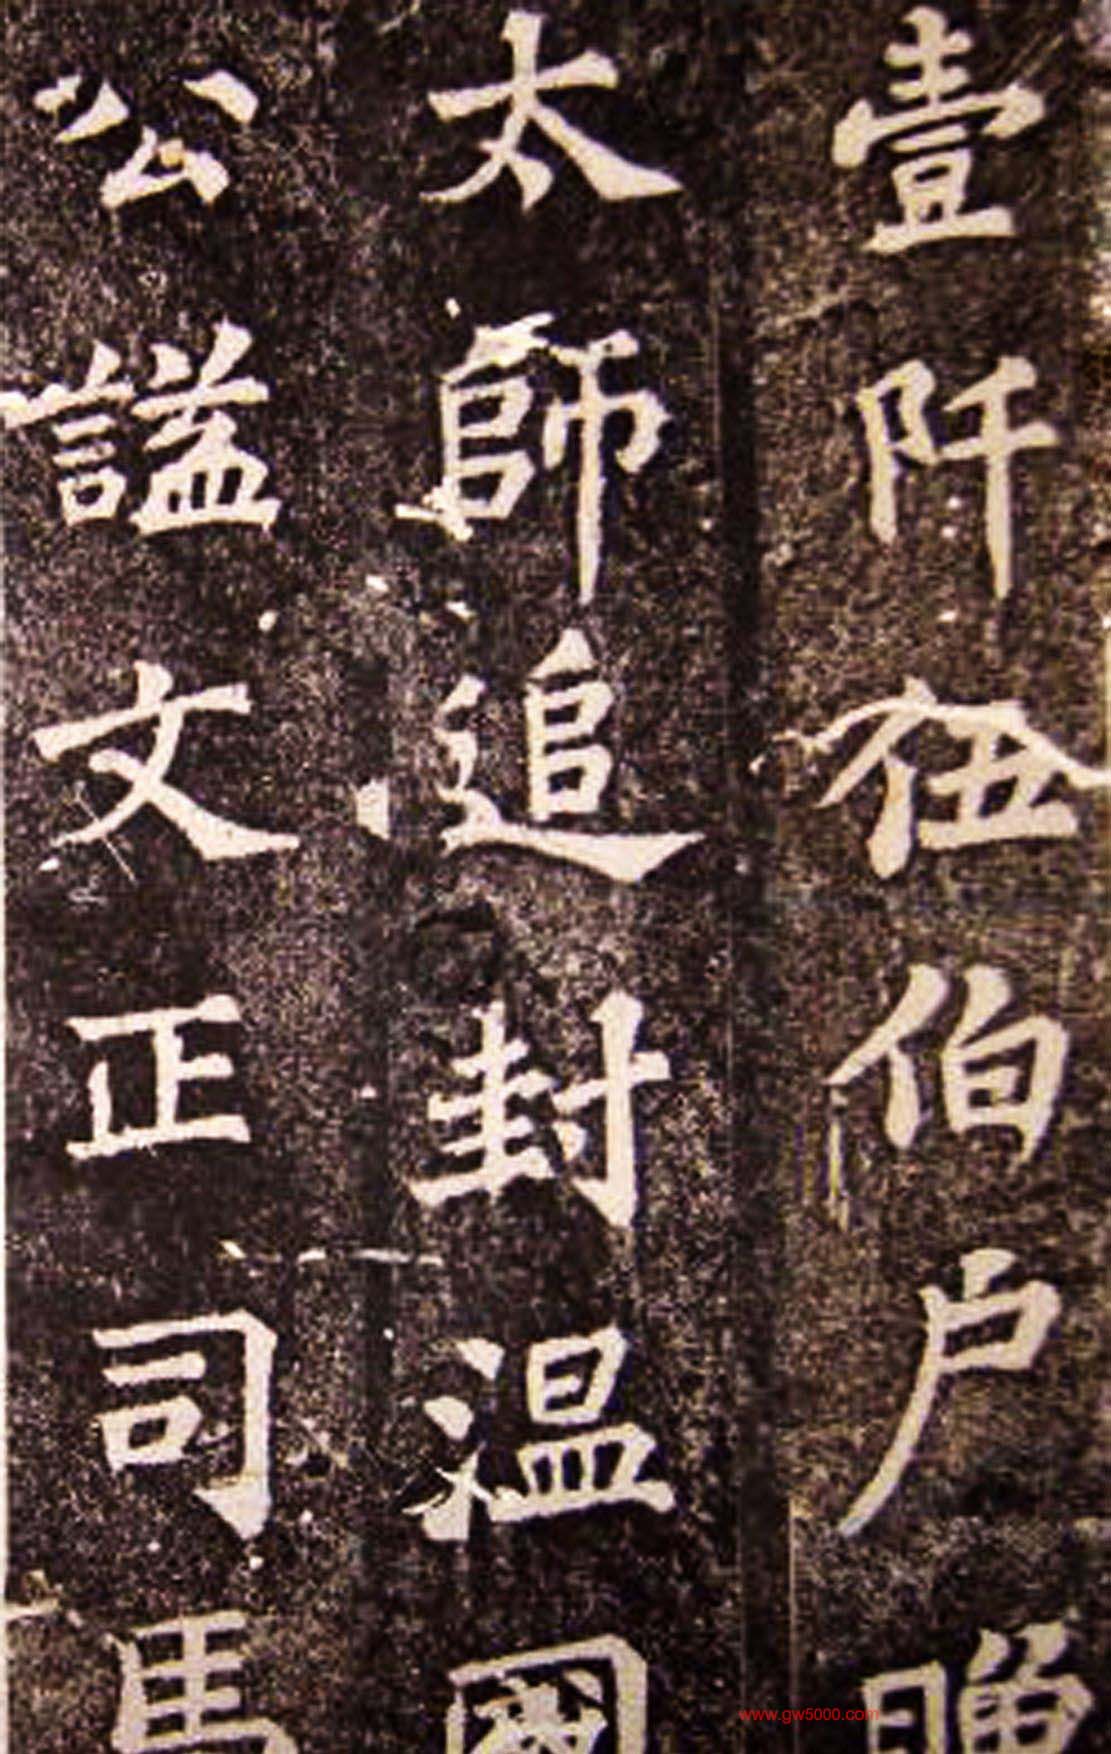 壹阡伍伯户贈
太師追封温國
公謚文正司馬
www.gw5000.com